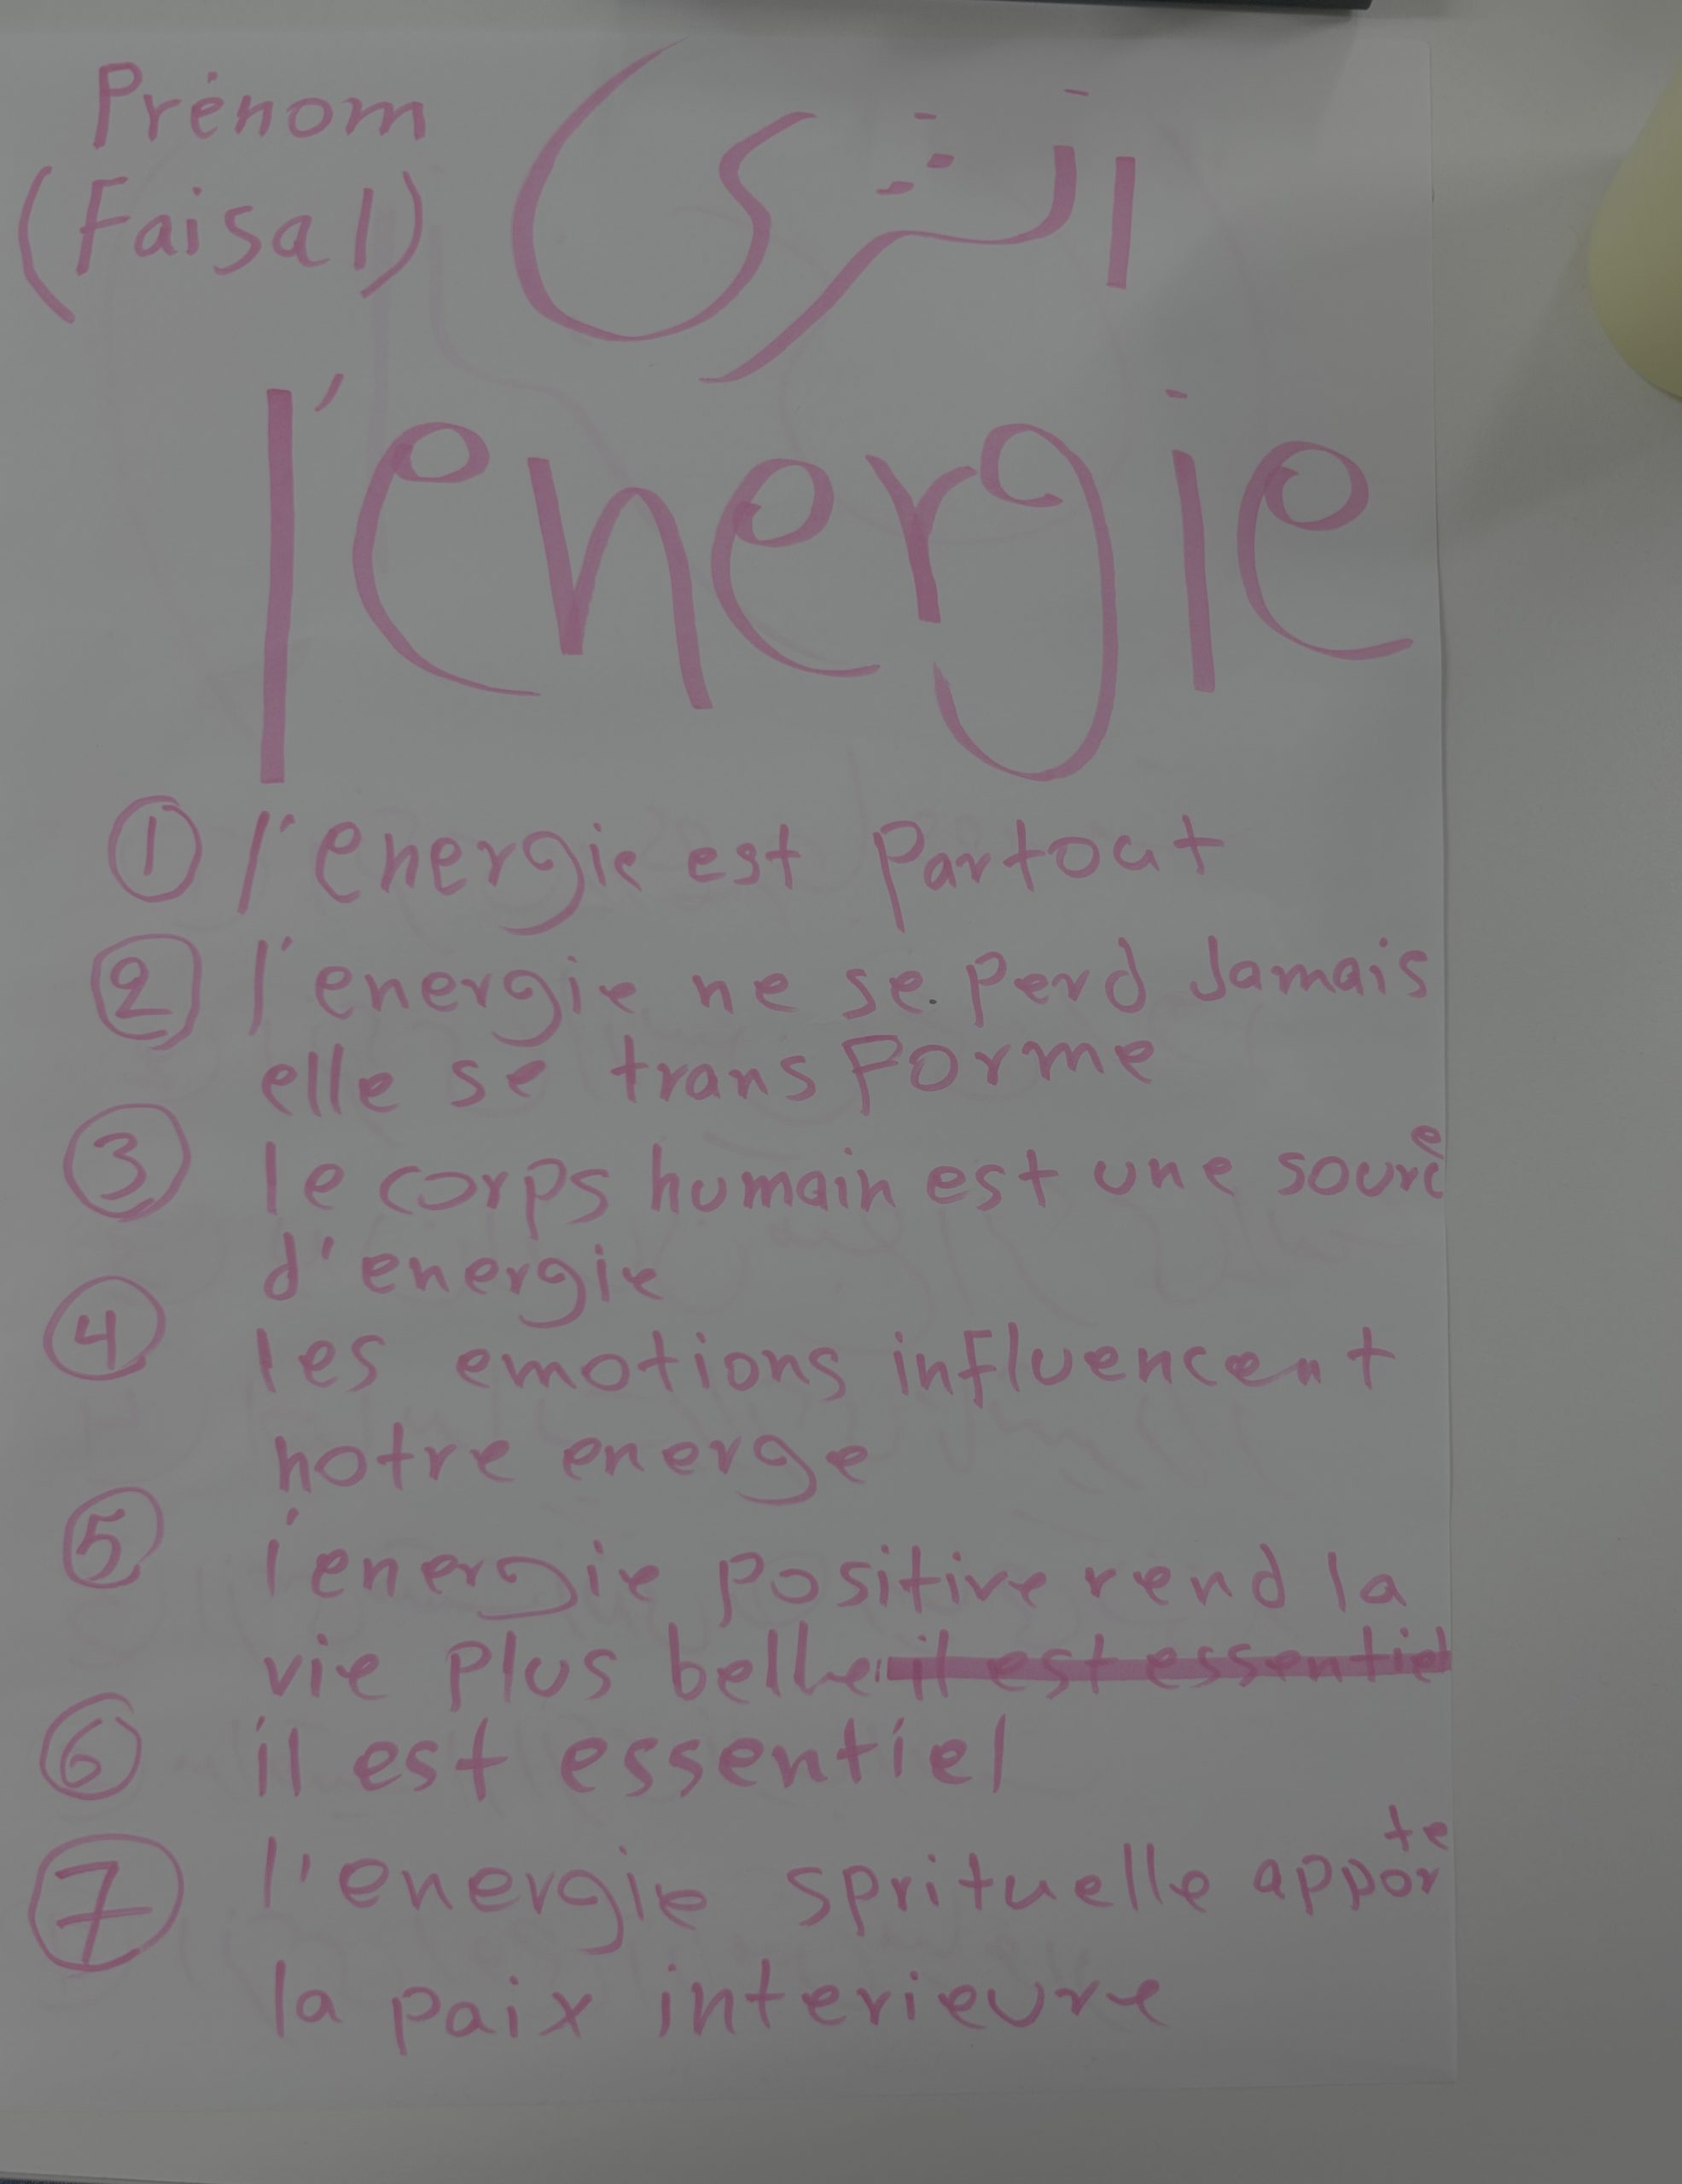 Prénom
(Faisal)
الثرى
l'energie
① l'energie est Partout
② l'energie ne se perd Jamais
elle se transForme
③ le corps humain est une source
d'energie
④ les emotions influencent
notre energe
⑤ l'energie positive rend la
vie plus belle il est essentiel
⑥ il est essentiel
⑦ l'energie sprituelle apporte
la paix interieure